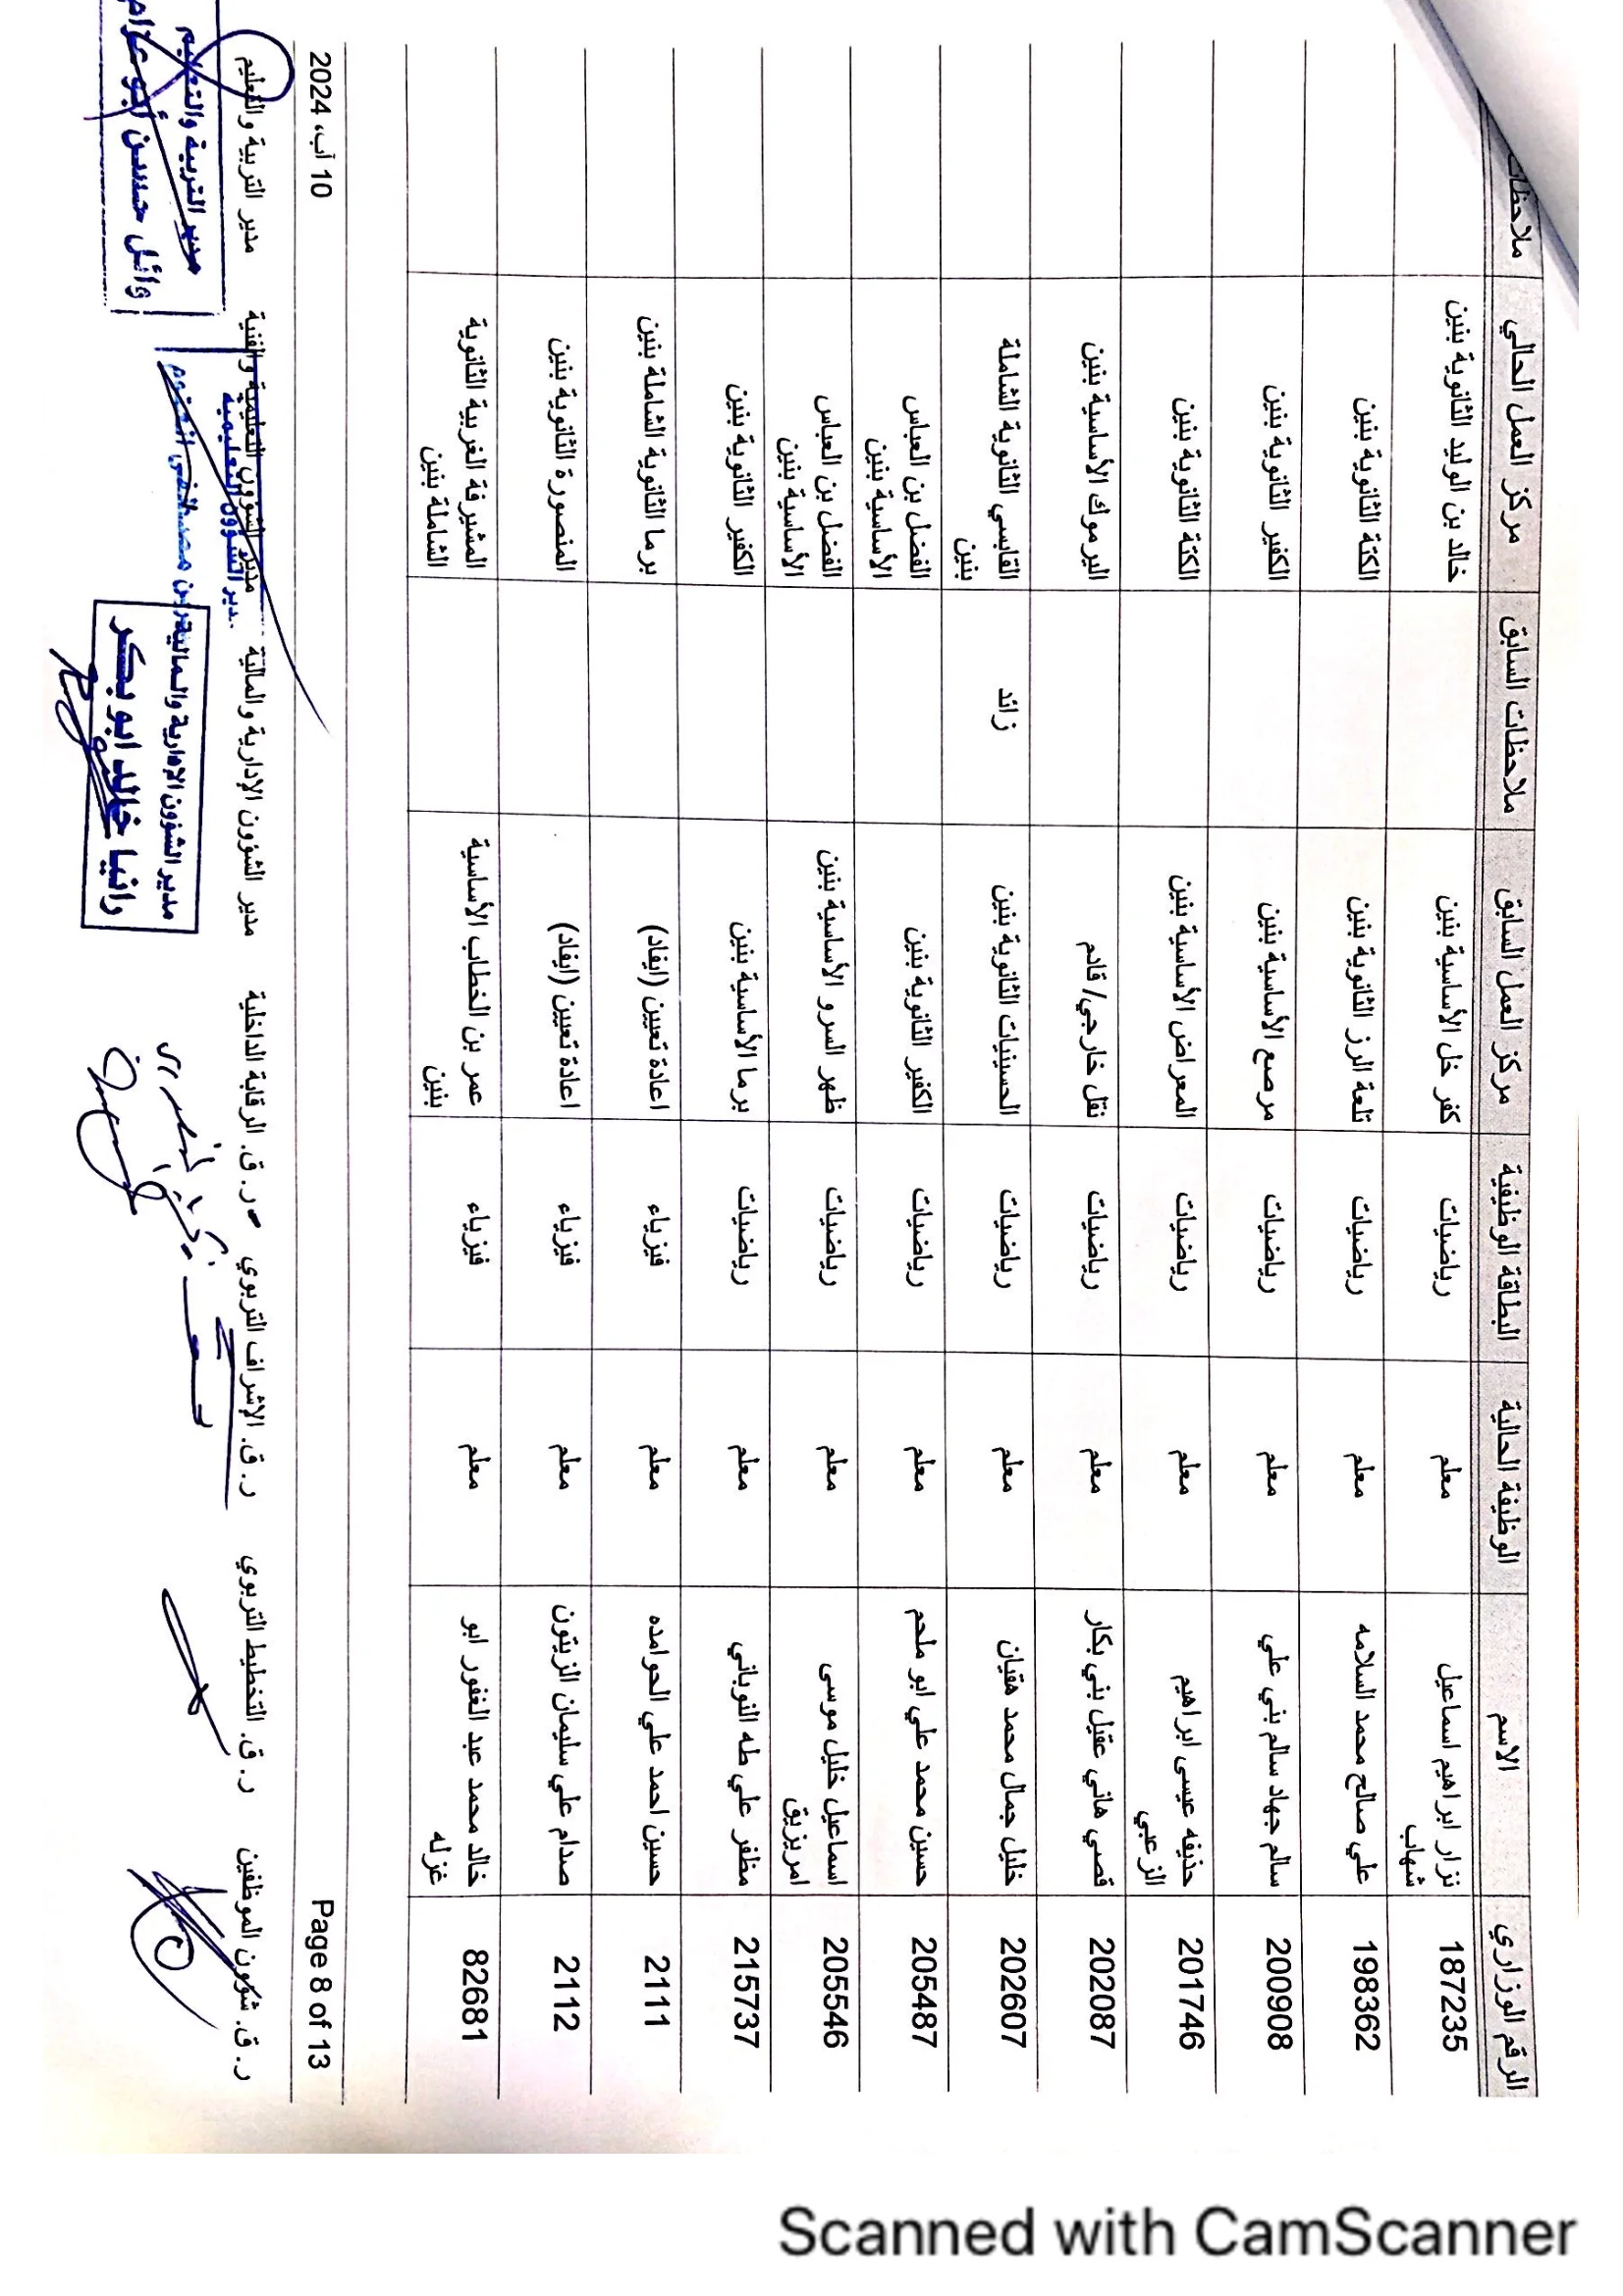 الرقم الوزاري الاسم الوظيفة الحالية البطاقة الوظيفية مركز العمل السابق ملاحظات السابق مركز العمل الحالي ملاحظات
187235 نزار ابراهيم اسماعيل شهاب معلم رياضيات كفر خل الأساسية بنين خالد بن الوليد الثانوية بنين
198362 علي صالح محمد السلامه معلم رياضيات تلعة الرز الثانوية بنين الكتة الثانوية بنين
200908 سالم جهاد سالم بني علي معلم رياضيات مرصع الأساسية بنين الكفير الثانوية بنين
201746 حذيفه عيسى ابراهيم الزعبي معلم رياضيات المعراض الأساسية بنين الكتة الثانوية بنين
202087 قصي هاني عقيل بني بكار معلم رياضيات نقل خارجي/ قادم اليرموك الأساسية بنين
202607 خليل جمال محمد هقيان معلم رياضيات الحسينيات الثانوية بنين زائد القابسي الثانوية الشاملة بنين
205487 حسين محمد علي ابو ملحم معلم رياضيات الكفير الثانوية بنين الفضل بن العباس الأساسية بنين
205546 اسماعيل خليل موسى امريزيق معلم رياضيات ظهر السرو الأساسية بنين الفضل بن العباس الأساسية بنين
215737 مظفر علي طه النوباني معلم رياضيات برما الأساسية بنين الكفير الثانوية بنين
2111 حسين احمد علي الحوامده معلم فيزياء اعادة تعيين (ايفاد) برما الثانوية الشاملة بنين
2112 صدام علي سليمان الزيتون معلم فيزياء اعادة تعيين (ايفاد) المنصورة الثانوية بنين
82681 خالد محمد عبد الغفور ابو غزله معلم فيزياء عمر بن الخطاب الأساسية بنين المشيرفة الغربية الثانوية الشاملة بنين
Page 8 of 13 10 آب، 2024
ر. ق. شؤون الموظفين ر. ق. التخطيط التربوي ر. ق. الإشراف التربوي ر. ق. الرقابة الداخلية مدير الشؤون الإدارية والمالية مدير الشؤون التعليمية والفنية مدير التربية والتعليم
مدير الشؤون الادارية والمالية
رانيا خالد ابو بكر
مدير الشؤون التعليمية
مدير التربية والتعليم
وائل حسن أبو عزام
Scanned with CamScanner